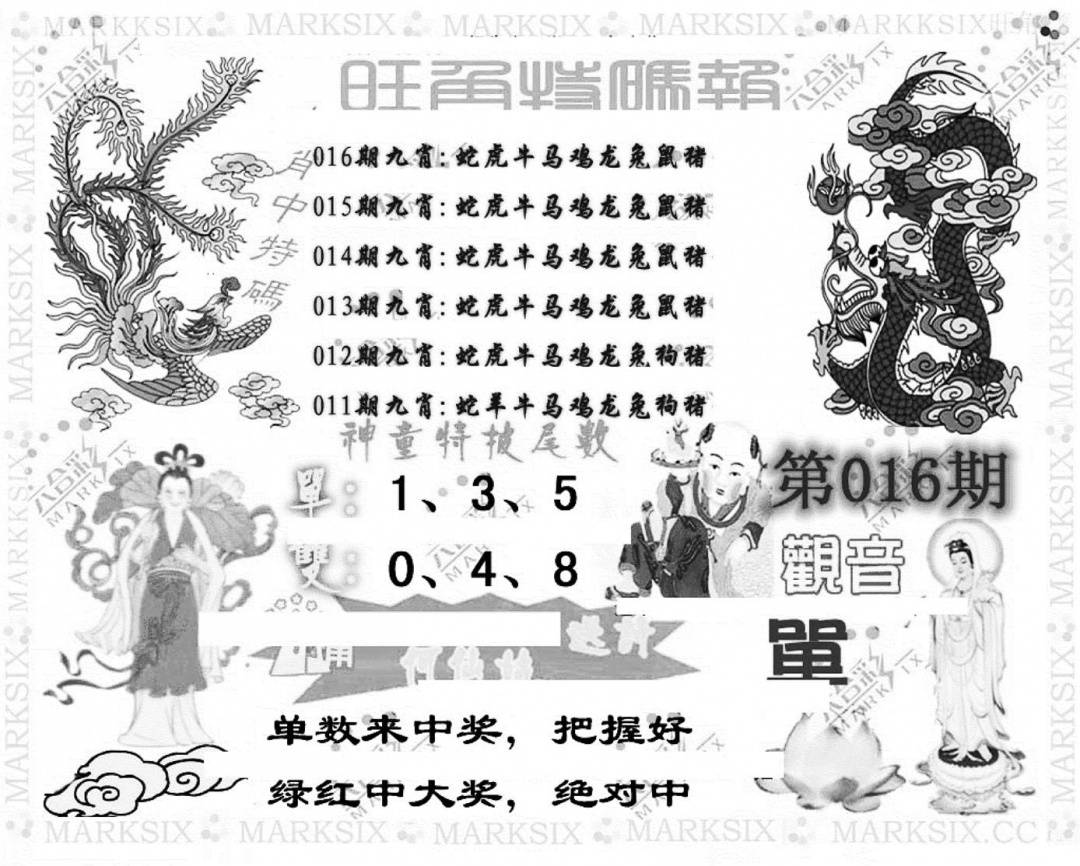 旺角特碼報
肖中特碼
016期九肖:蛇虎牛马鸡龙兔鼠猪
015期九肖:蛇虎牛马鸡龙兔鼠猪
014期九肖:蛇虎牛马鸡龙兔鼠猪
013期九肖:蛇虎牛马鸡龙兔鼠猪
012期九肖:蛇虎牛马鸡龙兔狗猪
011期九肖:蛇羊牛马鸡龙兔狗猪
神童特披尾數
單:1、3、5
雙:0、4、8
第016期
觀音
單
单数来中奖，把握好
绿红中大奖，绝对中
MARKSIX
MARKSIX.CC
六合彩